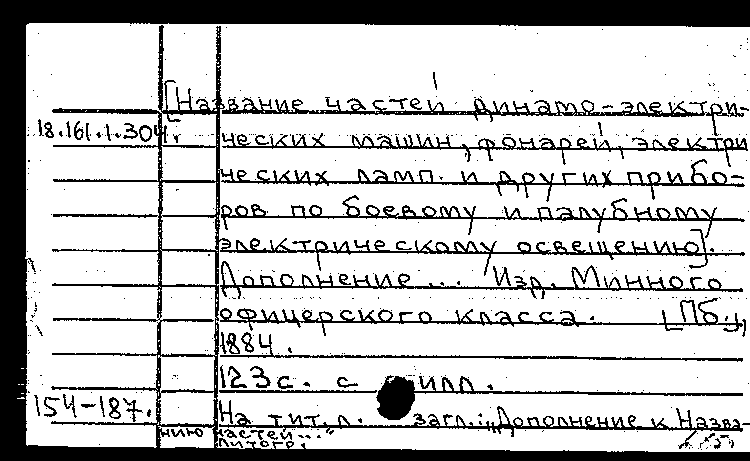 [Название частей динамо-электри-
18.161.1.304.
ческих машин, фонарей, электри
ческих ламп. и других прибо=
ров по боевому и палубному
электрическому освещению].
Дополнение... Изд. Минного
офицерского класса. [Пб.],
1884.
123 с. с илл.
154-187.
На тит. л. загл.: "Дополнение к Назва-
нию частей..."
Литогр.